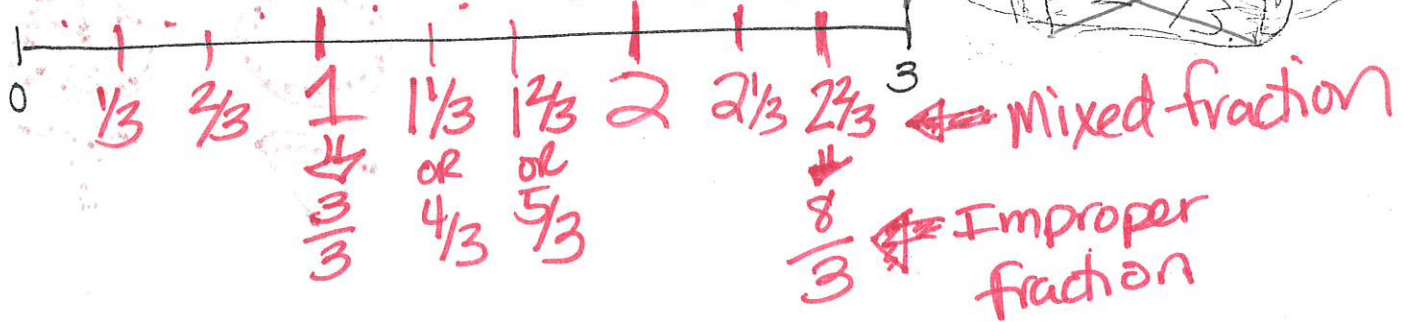 0 1/3 2/3 1 1 1/3 1 2/3 2 2 1/3 2 2/3 3 Mixed fraction
OR OR
3/3 4/3 5/3 8/3 Improper
fraction